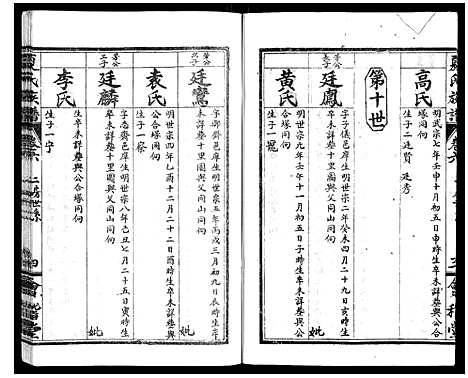 高氏
明武宗七年壬申十月初五日申時生卒未詳塟與公合
塔同向
生子二 廷賢 廷秀
第十世
廷鳳
字子儀邑庠生明世宗二年癸未四月二十九日辰時生
卒未詳塟十里園與父同山同向
妣
黃氏
明世宗九年壬午十一月初五日子時生卒未詳塟與公
合塔同向
生子一 寵
廷鸞
明世宗五年丙戌三月初九日辰時生
卒未詳塟十里園與父同山同向
妣
袁氏
明世宗四年乙酉十二月二十二日酉時生卒未詳塟與
公合塔同向
廷麟
字子 邑庠生明世宗八年己丑七月二十五日寅時生
卒未詳塟十里園與父同山同向
妣
李氏
生卒未詳塟與公合塔同向
生子一 宁
氏族譜
卷六
二房世系
四